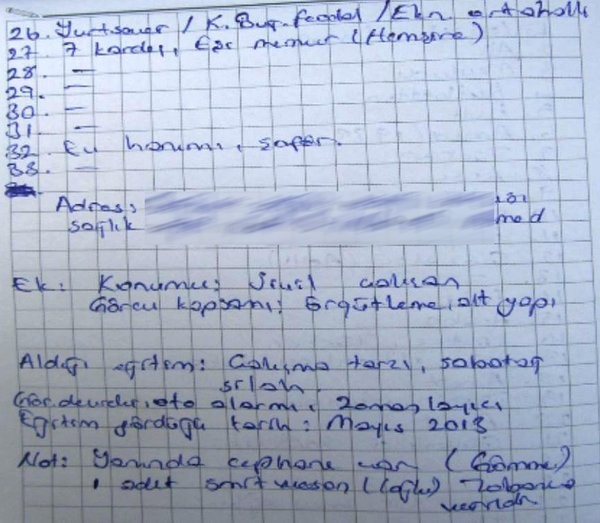 26. Yurtsever / K. Bur. feodal / Ekn. orta halli
27. 7 kardeş, Eşi memur (Hemşire)
28. —
29. —
30. —
31. —
32. Ev hanımı, şoför.
33. —
Adres:
sağlık
Ek: Konumu: Sivil çalışan
Görev kapsamı: Örgütleme, alt yapı
Aldığı eğitim: Çalışma tarzı, sabotaj
silah.
devreler, oto alarmı, zamanlayıcı
Eğitim gördüğü tarih: Mayıs 2013
Not: Yanında cephane var (Gömme)
1 adet